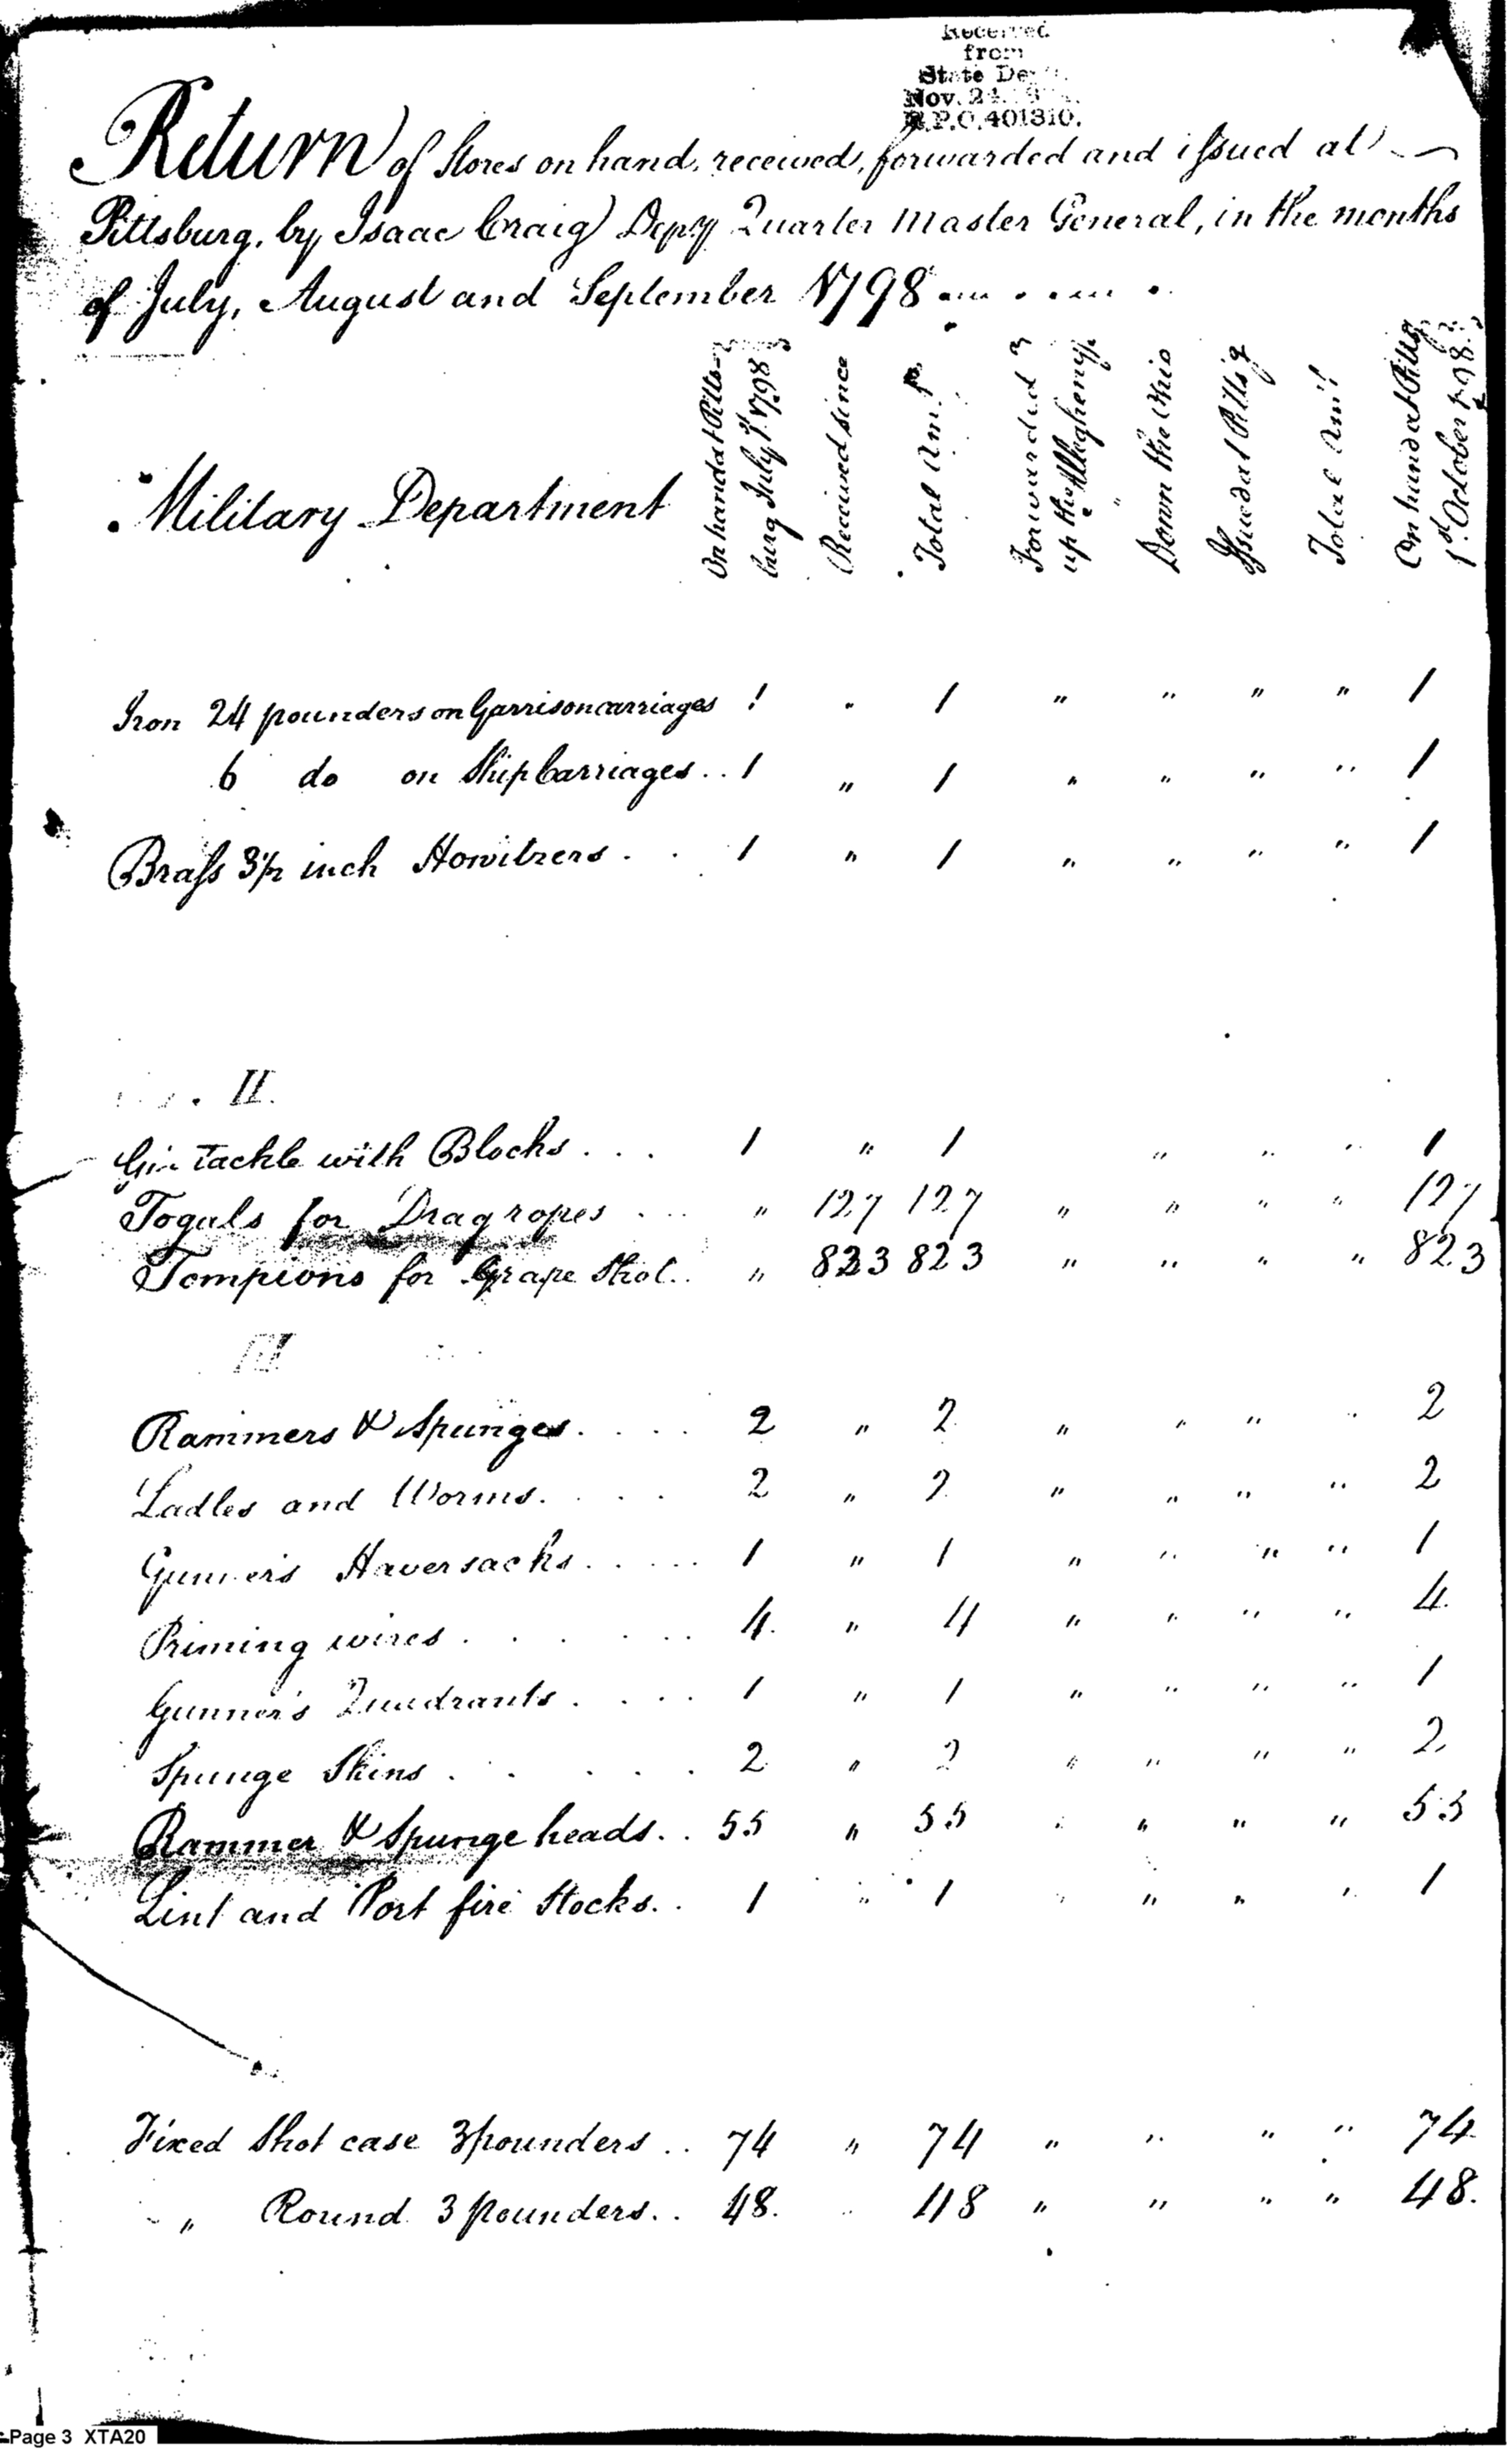 Received
from
State Dept.
Nov. 24.
R.P.O. 401310.
Return of Stores on hand, received, forwarded and issued at
Pittsburg, by Isaac Craig Depy Quarter Master General, in the months
of July, August and September 1798
Military Department
On hand at Pitts-
burg July 1st 1798
Received since
Total Amt.
Forwarded
up the Allegheny
Down the Ohio
Issued at Pitts'g
Total Amt
On hand at Pittsg
1st October 1798.
Iron 24 pounders on Garrison carriages 1 " 1 " " " " 1
6 do on Ship Carriages.. 1 " 1 " " " " 1
Brass 3½ inch Howitzers . . 1 " 1 " " " " 1
II.
Gin Tackle with Blocks . . . 1 " 1 " " " 1
Toguls for Dragropes . . . " 127 127 " " " " 127
Tompions for Grape Shot.. " 823 823 " " " " 823
III
Rammers & Spunges. . . . 2 " 2 " " " " 2
Ladles and Worms. . . . 2 " 2 " " " " 2
Gunner's Haversacks. . . . . 1 " 1 " " " " 1
Priming wires . . . . . . 4. " 4 " " " " 4.
Gunner's Quadrants . . . . 1 " 1 " " " " 1
Spunge Skins . . . . . . 2 " 2 " " " " 2
Rammer & Spunge heads. . 55 " 55 " " " " 55
Lint and Port fire Stocks. . 1 " 1 " " " " 1
Fixed Shot case 3 pounders . . 74 " 74 " " " " 74
" Round 3 pounders. . 48. " 48 " " " " 48.
Page 3 XTA20